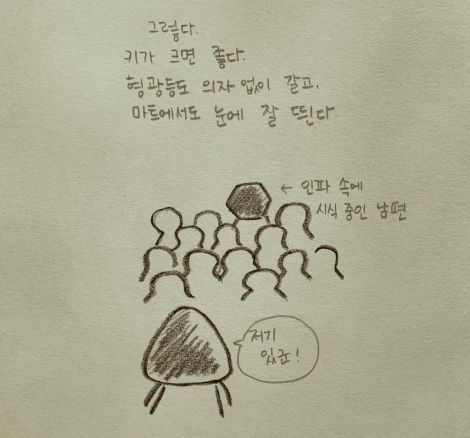 그렇다.
키가 크면 좋다.
형광등도 의자 없이 갈고,
마트에서도 눈에 잘 띈다.
← 인파 속에
시식 중인 남편
저기
있군!